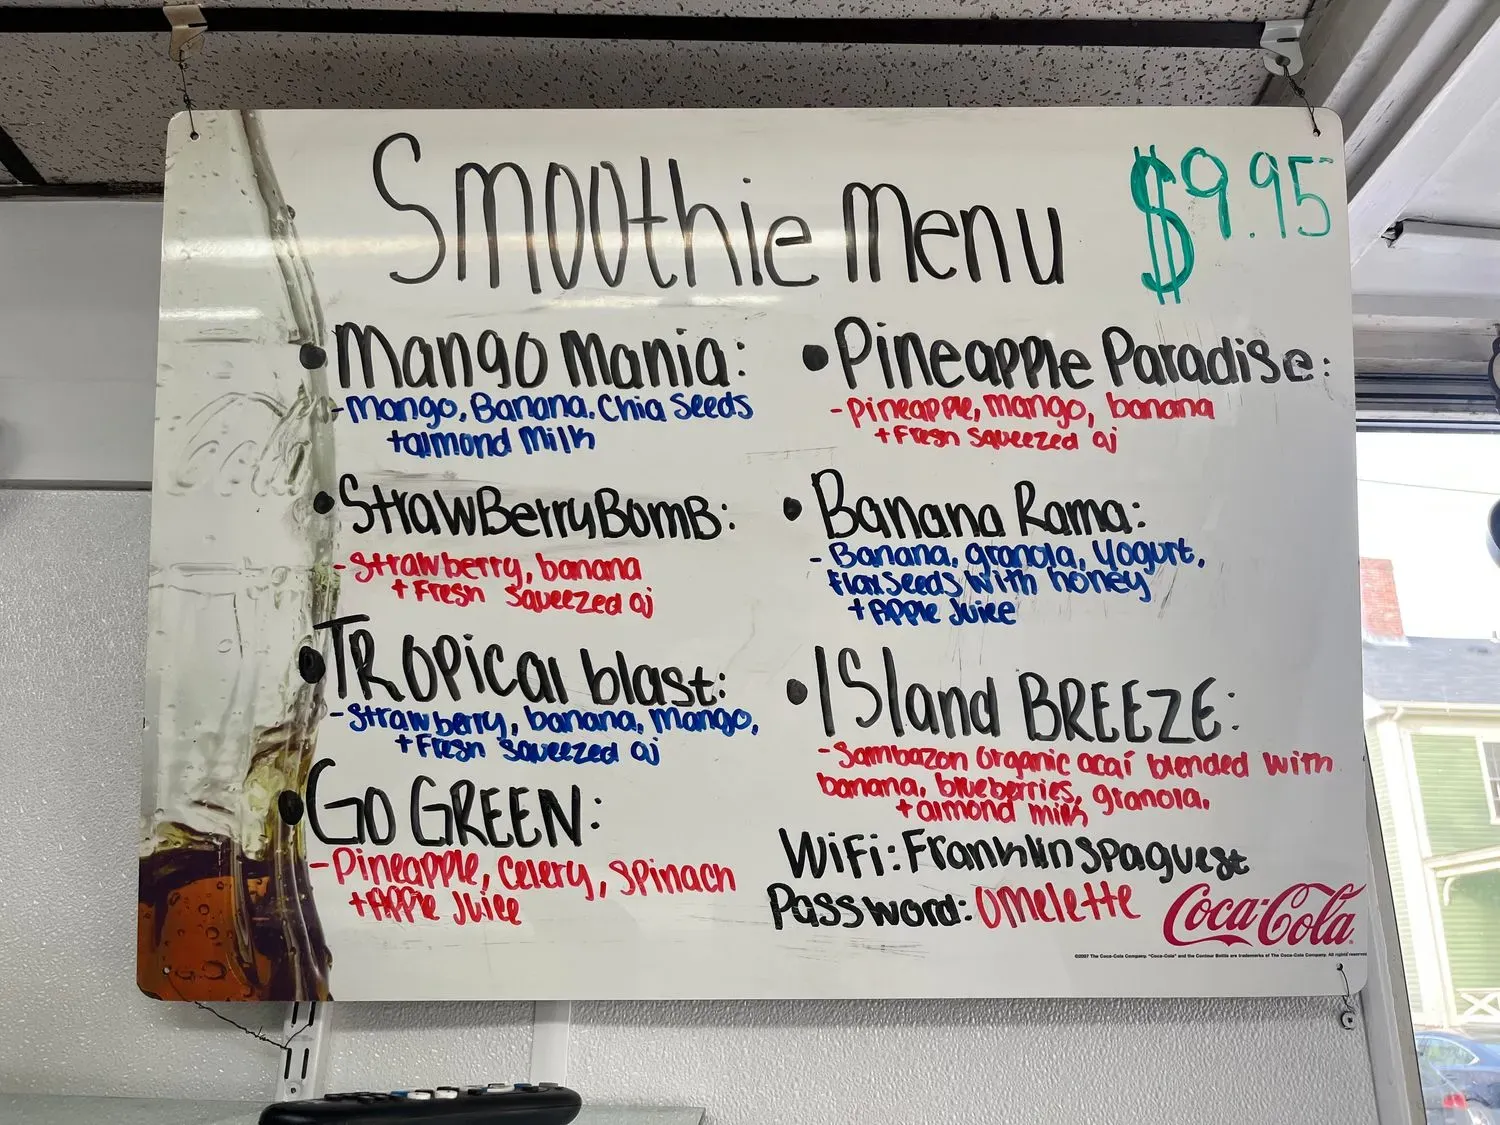 Smoothie Menu $9.95
• Mango Mania:
- Mango, Banana, Chia Seeds
+ almond Milk
• StrawBerry BomB:
- Strawberry, banana
+ Fresh Squeezed oj
• TROPical blast:
- Strawberry, banana, mango,
+ Fresh Squeezed oj
• GO GREEN:
- Pineapple, Celery, Spinach
+ Apple Juice
• Pineapple Paradise:
- Pineapple, mango, banana
+ Fresh Squeezed oj
• Banana Rama:
- Banana, granola, Yogurt,
flaxseeds with honey
+ Apple Juice
• ISland BREEZE:
- Sambazon Organic acaí blended with
banana, blueberries, granola,
+ almond milk
WiFi: Franklinspaguest
Password: Omelette
Coca-Cola
©2007 The Coca-Cola Company. "Coca-Cola" and the Contour Bottle are trademarks of The Coca-Cola Company. All rights reserved